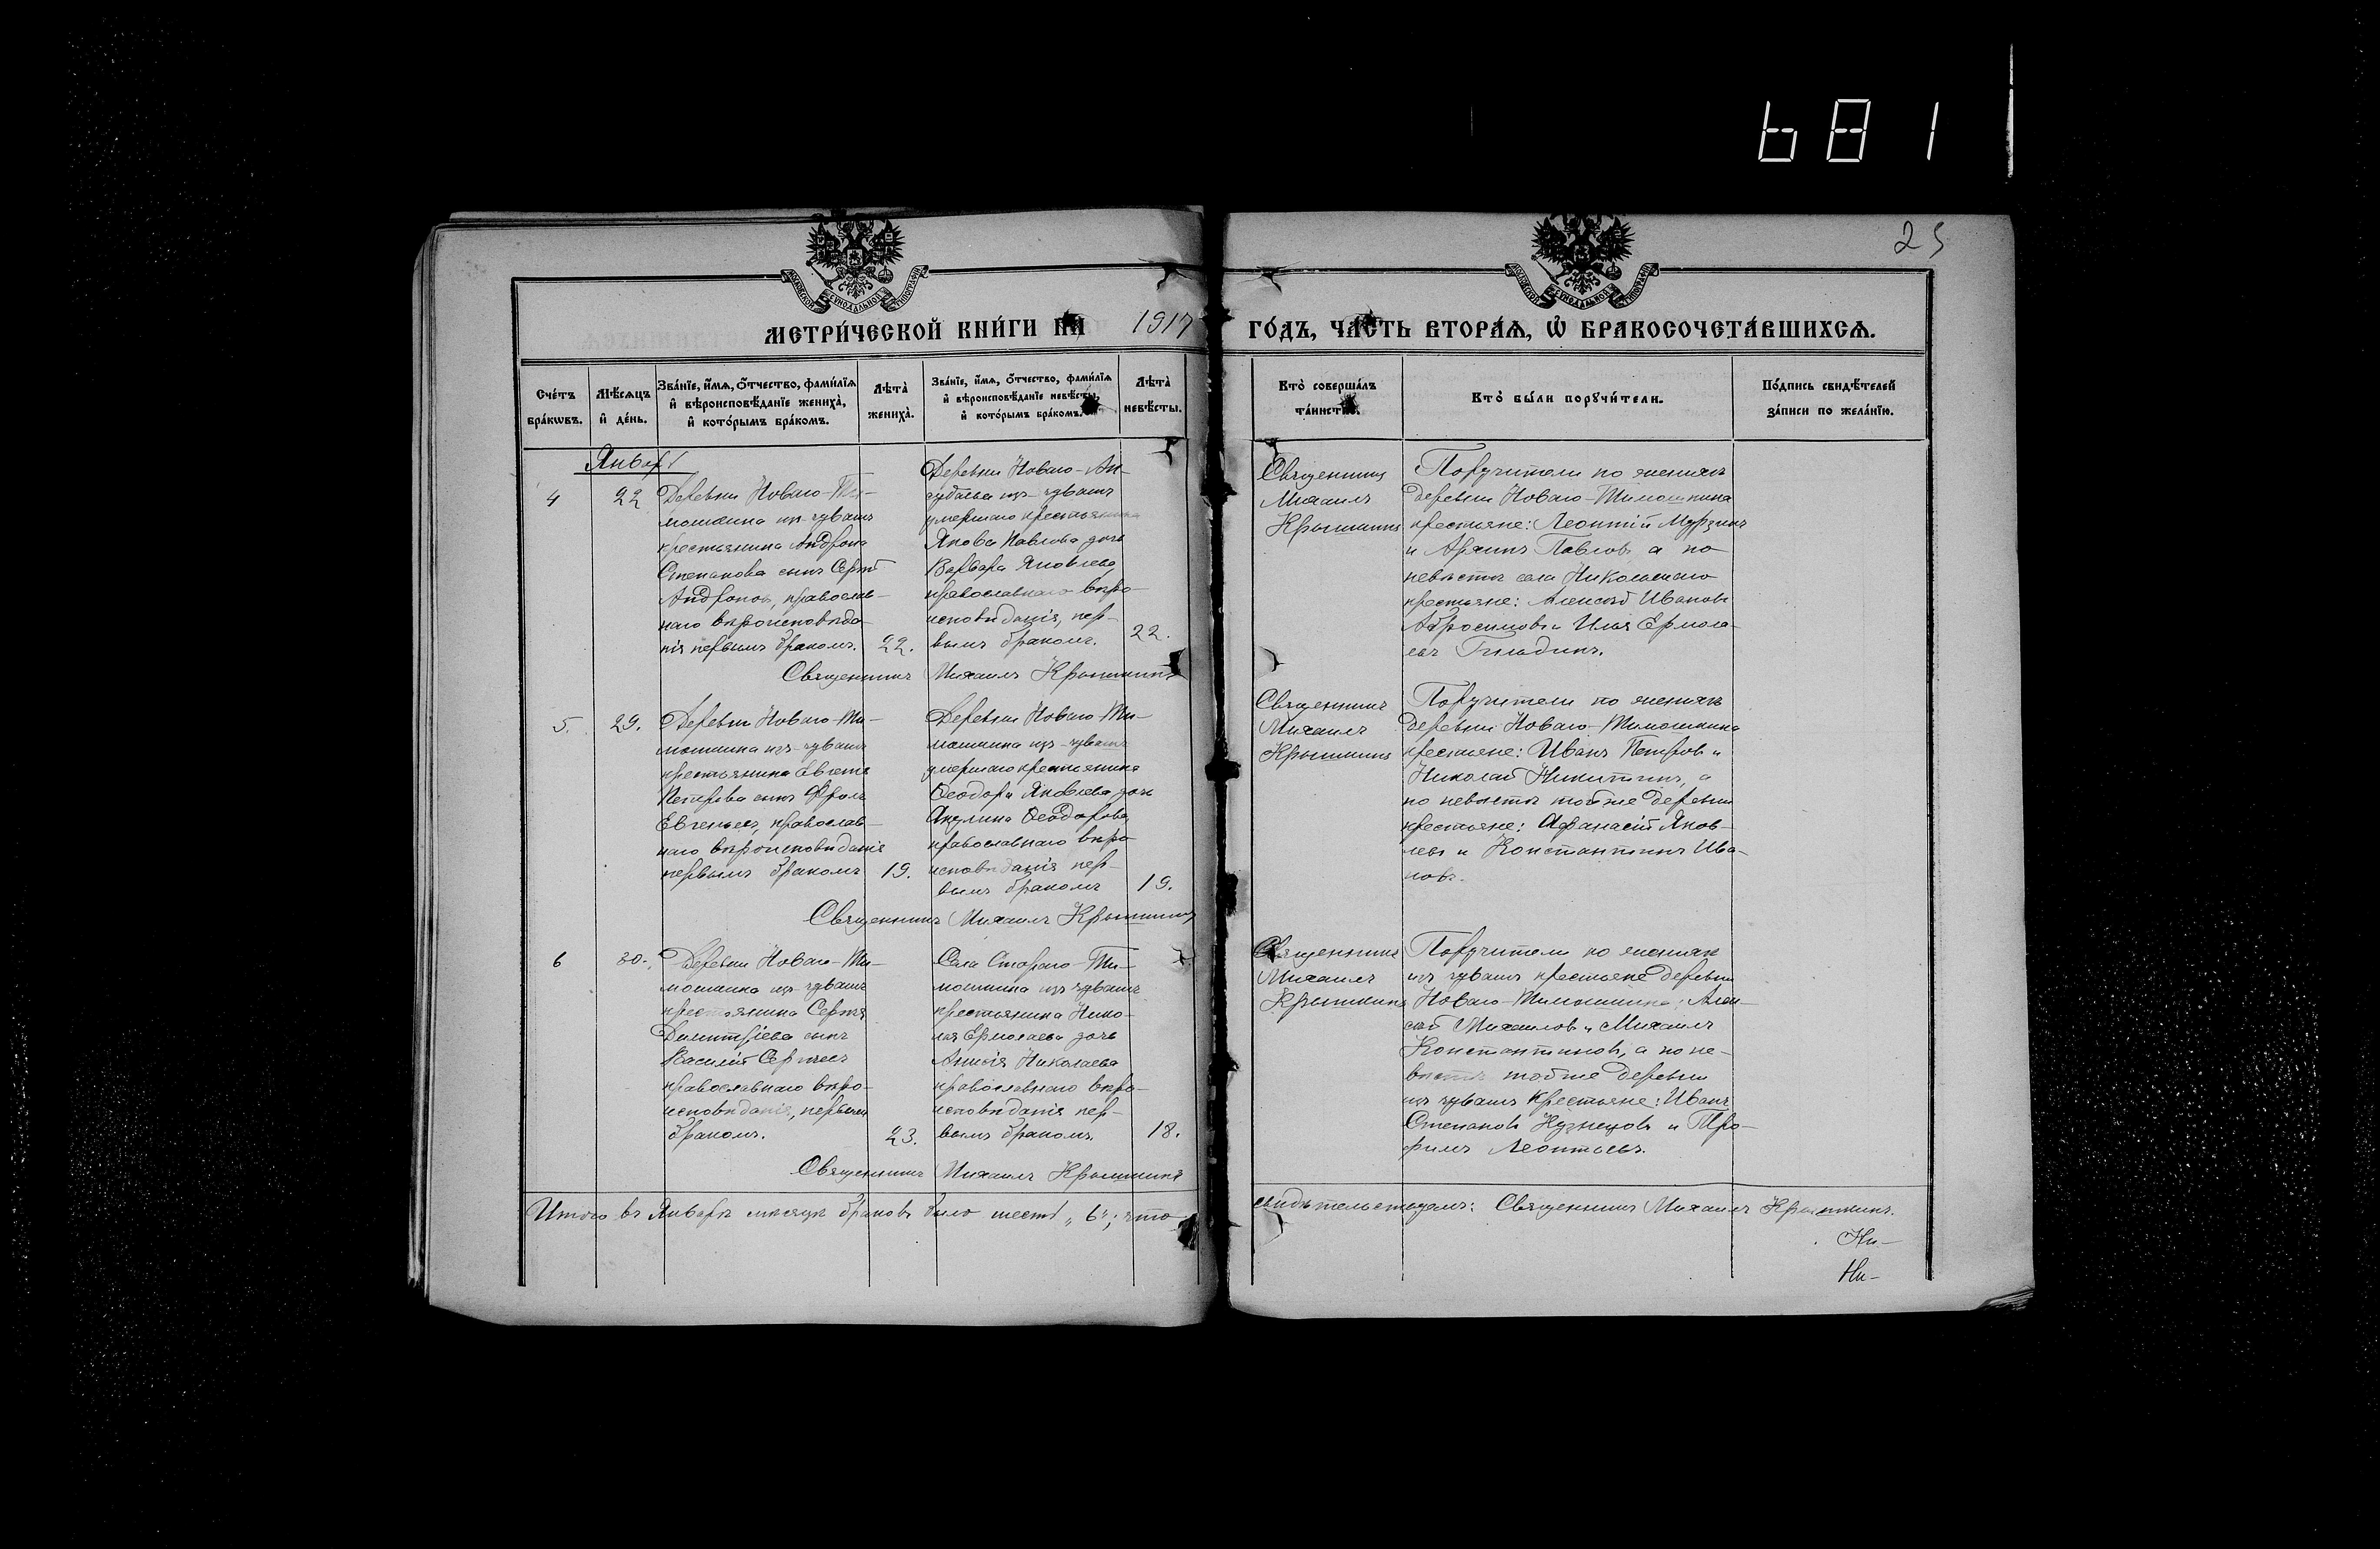 681
25
МЕТРИЧЕСКОЙ КНИГИ НА 1917 ГОДЪ, ЧАСТЬ ВТОРАЯ, Ѡ БРАКОСОЧЕТАВШИХСЯ.
Счетъ браковъ.
Мѣсяцъ и день.
Званіе, имя, отчество, фамилія и вѣроисповѣданіе жениха, и которымъ бракомъ.
Лѣта жениха.
Званіе, имя, отчество, фамилія и вѣроисповѣданіе невѣсты, и которымъ бракомъ.
Лѣта невѣсты.
Кто совершалъ таинство.
Кто были поручители.
Подпись свидѣтелей записи по желанію.
Январь
4
22
Деревни Новаго-Ти-
мошкина из-чувашъ
крестьянина Андрона
Степанова сынъ Сергѣй
Андроновъ, православ-
наго вѣроисповѣда-
нія первымъ бракомъ.
22.
Деревни Новаго-
изъ-чувашъ
умершаго крестьянина
Якова Павлова дочь
Варвара Яковлева,
православнаго вѣро-
исповѣданія, пер-
вымъ бракомъ.
22.
Священникъ Михаилъ Крышкинъ
Священникъ
Михаилъ
Крышкинъ
Поручители по женихѣ
деревни Новаго-Тимошкина
крестьяне: Леонтій Мурзинъ
и Павловъ а по
невѣстѣ села Никольскаго
крестьяне: Алексѣй Ивановъ
Абросимовъ и Илья Ермола-
евъ
5.
29.
Деревни Новаго-Ти-
мошкина изъ-чувашъ
крестьянина Евгенія
Петрова сынъ Фролъ
Евгеньевъ, православ-
наго вѣроисповѣданія
первымъ бракомъ
19.
Деревни Новаго Ти-
мошкина изъ-чувашъ
умершаго крестьянина
Ѳеодора Яковлева дочь
Акулина Ѳеодорова,
православнаго вѣро-
исповѣданія пер-
вымъ бракомъ
19.
Священникъ Михаилъ Крышкинъ
Священникъ
Михаилъ
Крышкинъ
Поручители по женихѣ
деревни Новаго-Тимошкина
крестьяне: Иванъ Петровъ и
Николай Никитинъ, а
по невѣстѣ той же деревни
крестьяне: Аѳанасій Яков-
левъ и Константинъ Ива-
новъ.
6
30.
Деревни Новаго-Ти-
мошкина изъ-чувашъ
крестьянина Сергѣя
Димитріева сынъ
Василій Сергѣевъ
православнаго вѣро-
исповѣданія, первымъ
бракомъ.
23.
Села Стараго-Ти-
мошкина изъ чувашъ
крестьянина Нико-
лая Ермолаева дочь
Анисія Николаева
православнаго вѣро-
исповѣданія пер-
вымъ бракомъ.
18.
Священникъ Михаилъ Крышкинъ
Священникъ
Михаилъ
Крышкинъ
Поручители по женихѣ
изъ чувашъ крестьяне деревни
Новаго-Тимошкина: Алек-
сѣй Михаиловъ и Михаилъ
Константиновъ, а по не-
вѣстѣ той же деревни
изъ чувашъ крестьяне: Иванъ
Степановъ Кузнецовъ и Тро-
фимъ Леонтьевъ.
Итого въ Январѣ мѣсяцѣ браковъ было шесть „6"; что
свидѣтельствуемъ: Священникъ Михаилъ Крышкинъ.
Ни-
Ни-